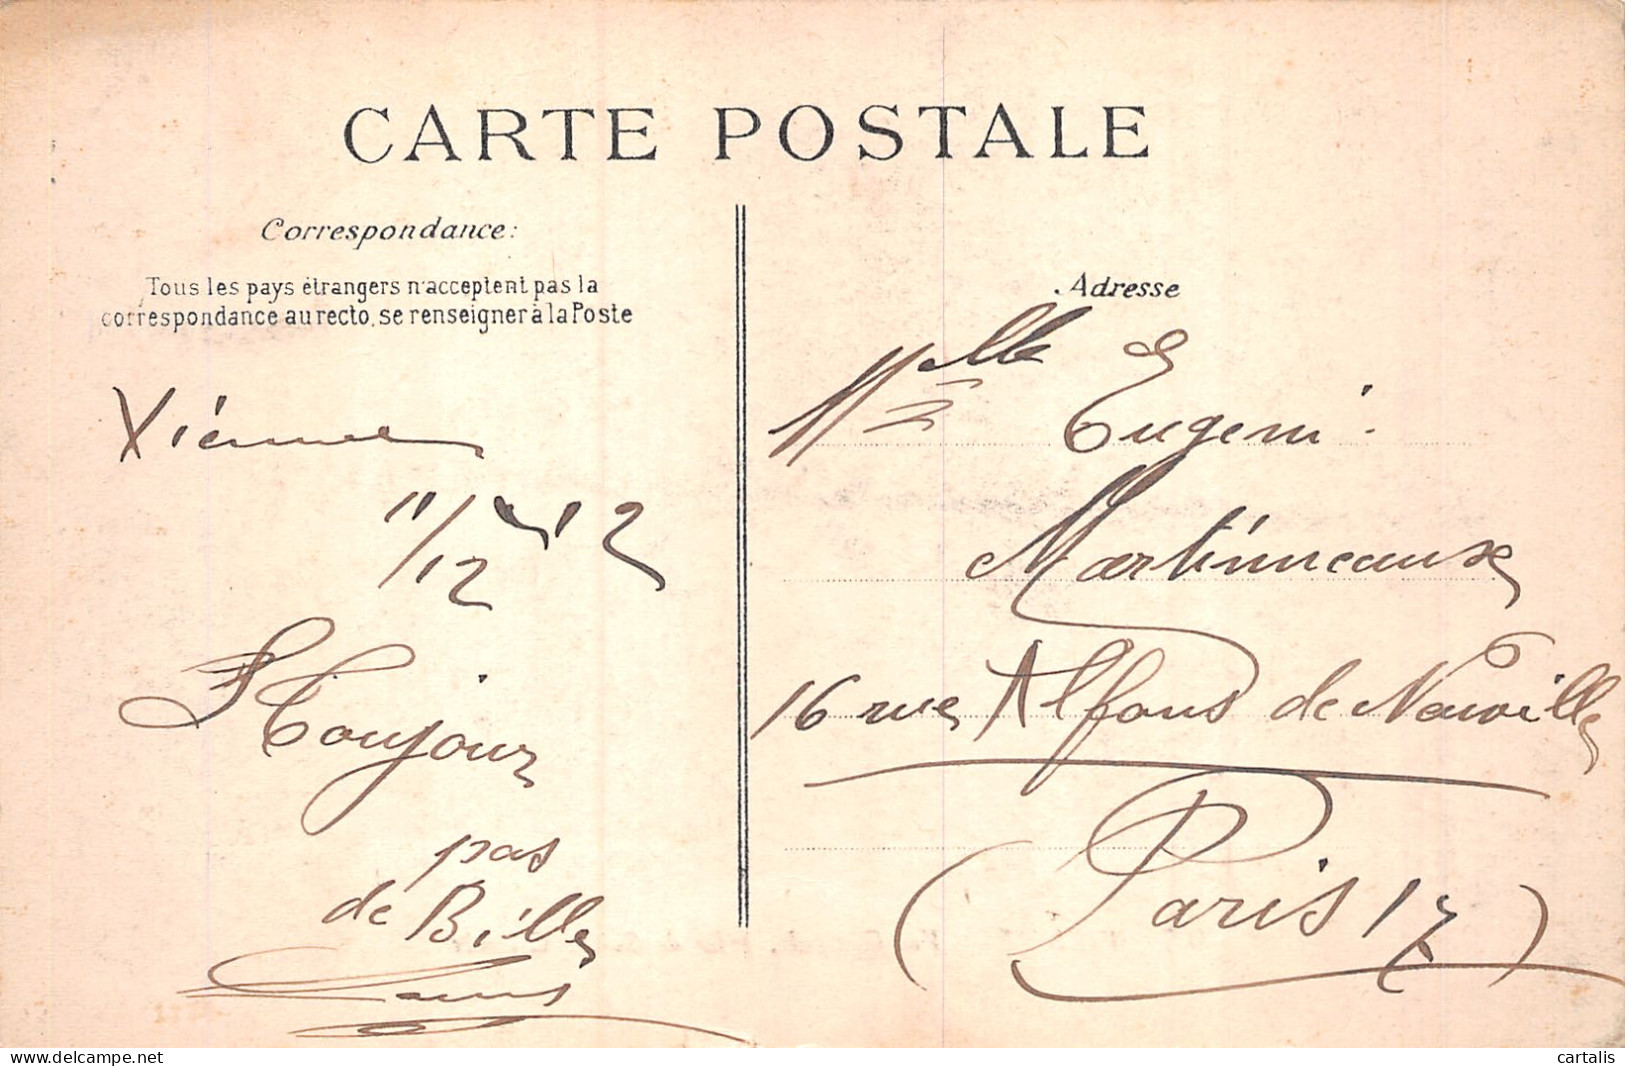 CARTE POSTALE
Correspondance:
Tous les pays étrangers n'acceptent pas la
correspondance au recto, se renseigner à la Poste
Vienne
11/12 12
Toujour
pas
de Bille
Louis
Adresse
Mlle Eugeni
Martinneaux
16 rue Alfons de Neuville
(Paris 17)
cartalis